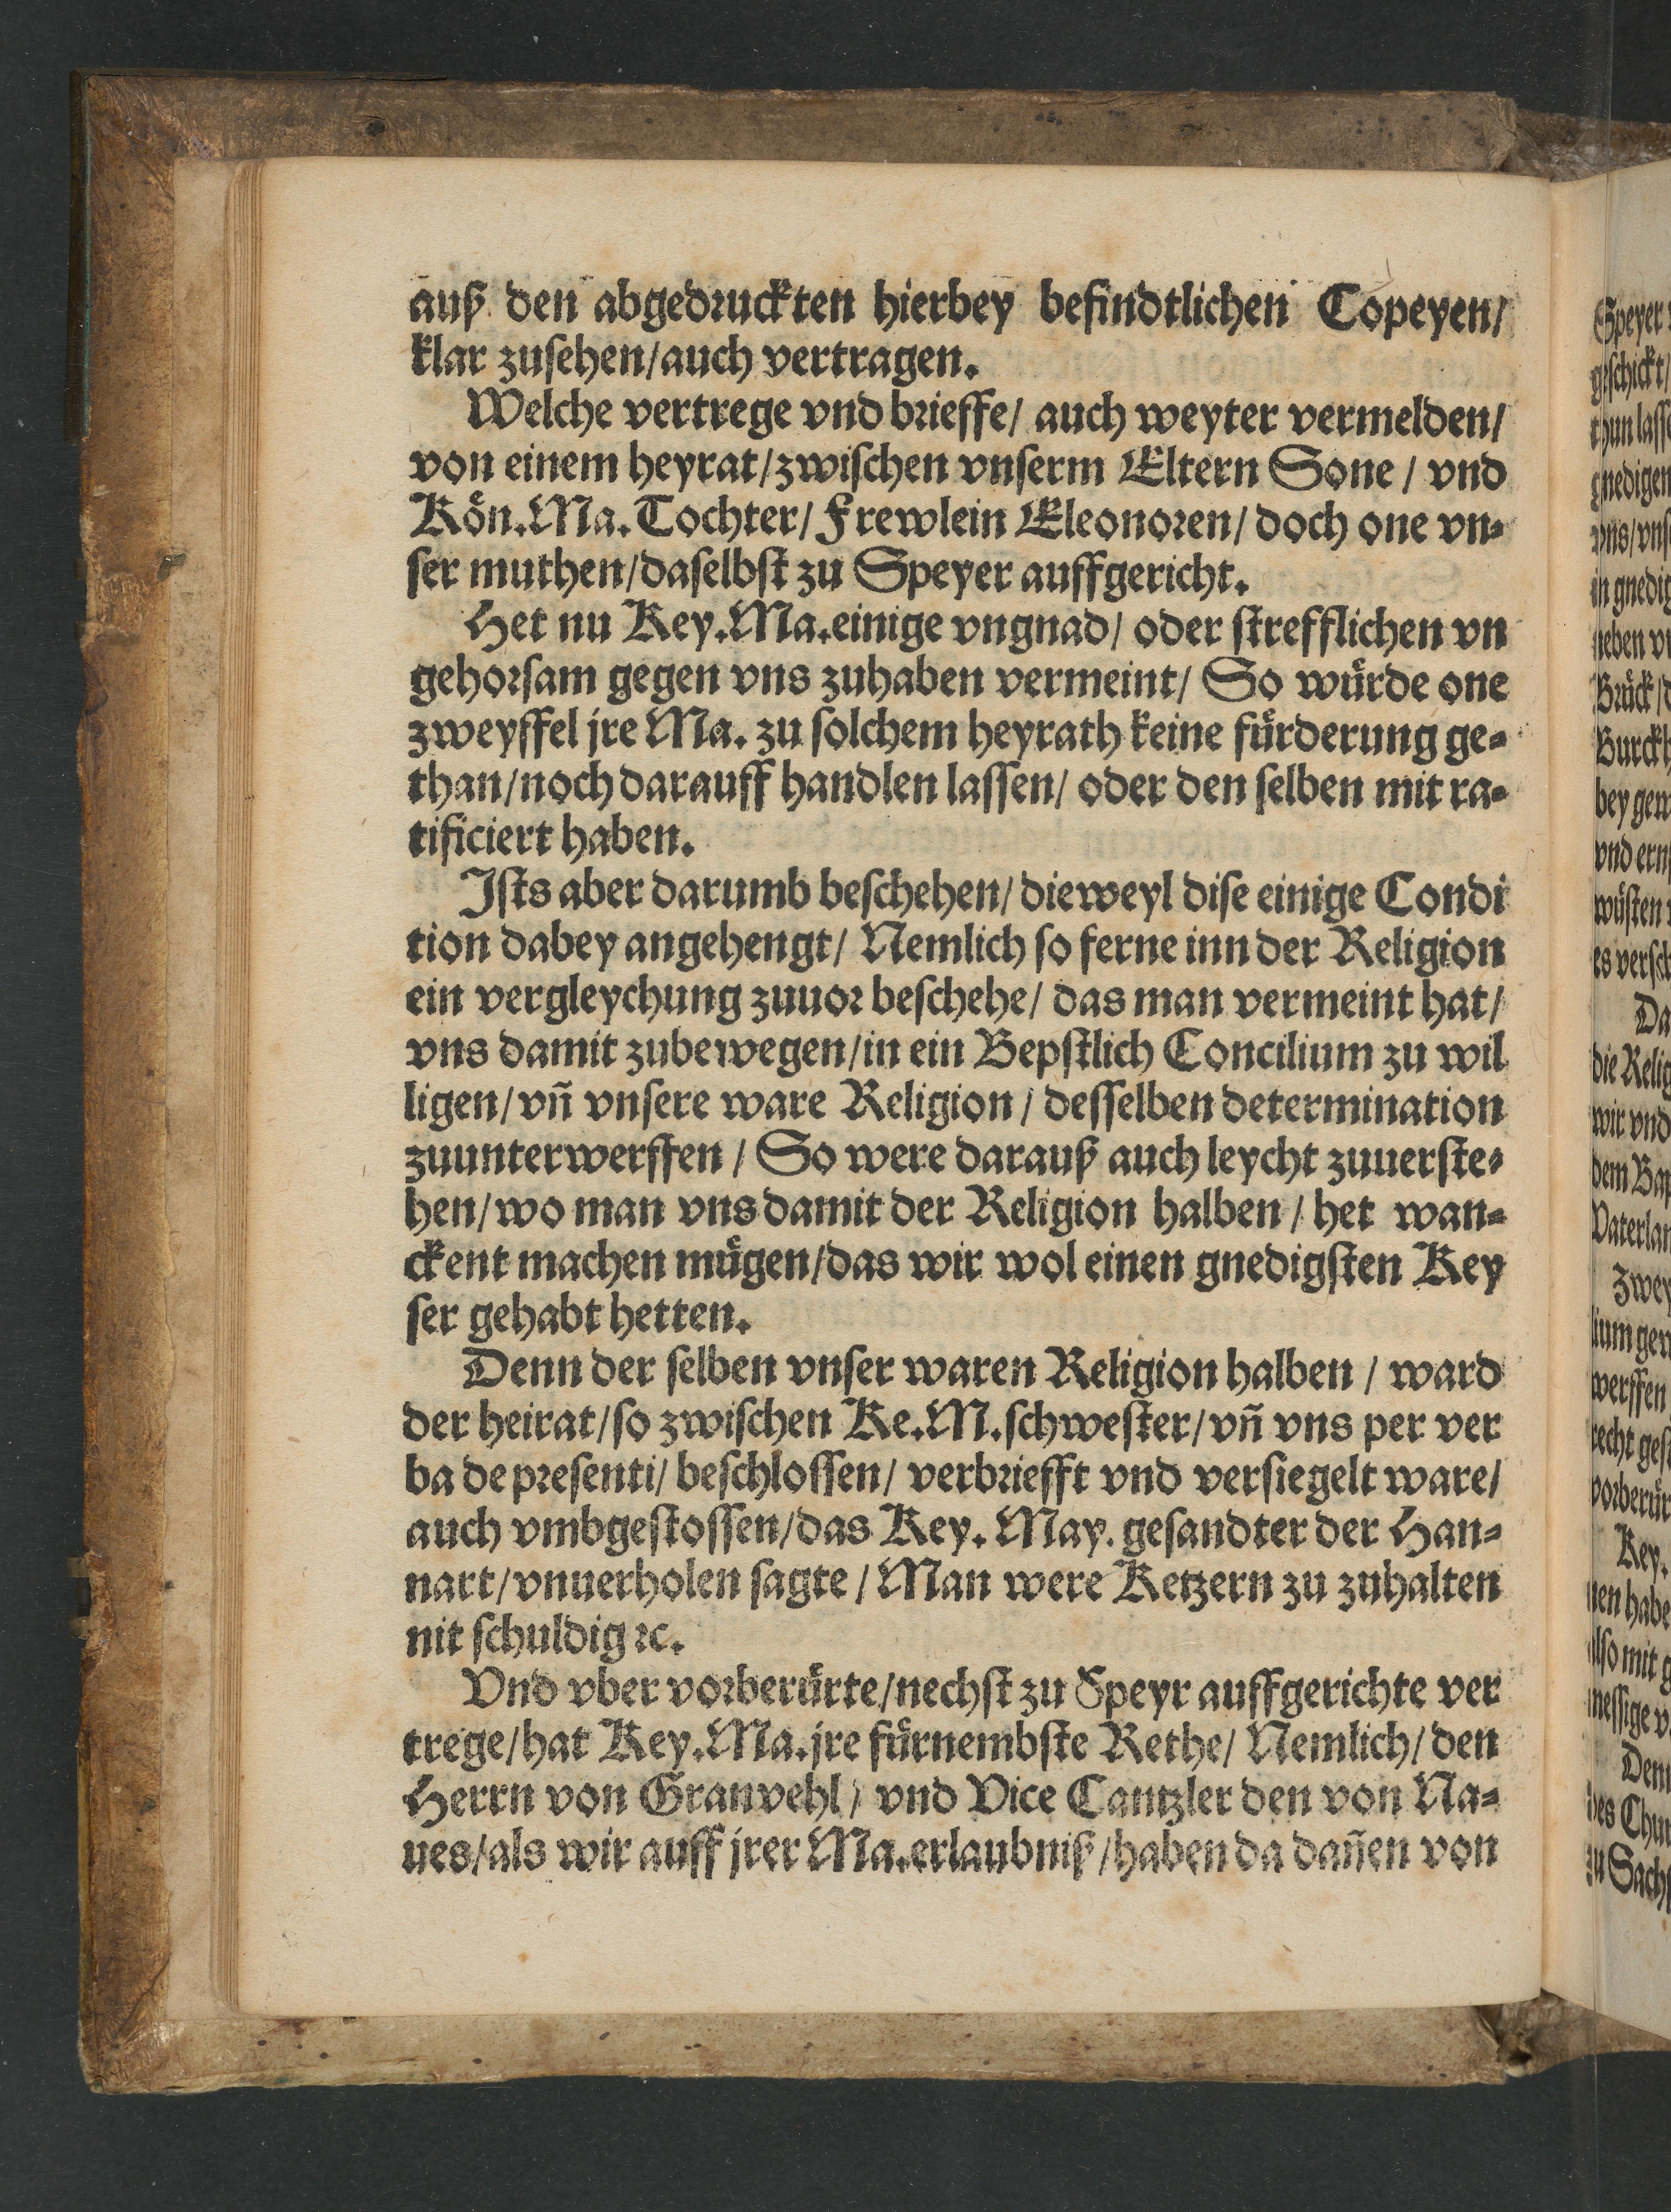 auß den abgedꝛuckten hierbey befindtlichen Copeyen/
klar zuſehen/auch vertragen.
Welche vertrege vnd bꝛieffe/ auch weyter vermelden/
von einem heyrat/zwiſchen vnſerm Eltern Sone / vnd
Koͤn.Ma.Tochter/ Frewlein Eleonoꝛen/ doch one vn⸗
ſer muthen/daſelbſt zu Speyer auffgericht.
Het nu Key.Ma.einige vngnad/ oder ſtrefflichen vn
gehoꝛſam gegen vns zuhaben vermeint/ So wuͤrde one
zweyffel jre Ma. zu ſolchem heyrath keine fuͤrderung ge⸗
than/noch darauff handlen laſſen/ oder den ſelben mit ra⸗
tificiert haben.
Iſts aber darumb beſchehen/ dieweyl diſe einige Condi
tion dabey angehengt/ Nemlich ſo ferne inn der Religion
ein vergleychung zuuoꝛ beſchehe/ das man vermeint hat/
vns damit zubewegen/in ein Bepſtlich Concilium zu wil
ligen/vn̄ vnſere ware Religion / deſſelben determination
zuunterwerffen / So were darauß auch leycht zuuerſte⸗
hen/wo man vns damit der Religion halben / het wan⸗
ckent machen muͤgen/das wir wol einen gnedigſten Key
ſer gehabt hetten.
Denn der ſelben vnſer waren Religion halben / ward
der heirat/ſo zwiſchen Ke.M.ſchweſter/vn̄ vns per ver
ba de pꝛeſenti/ beſchloſſen/ verbꝛiefft vnd verſiegelt ware/
auch vmbgeſtoſſen/das Key. May. geſandter der Han⸗
nart/vnuerholen ſagte / Man were Ketzern zu zuhalten
nit ſchuldig ꝛc.
Vnd vber voꝛberuͤrte/nechſt zu Speyr auffgerichte ver
trege/hat Key.Ma.jre fuͤrnembſte Rethe/ Nemlich/ den
Herrn von Granvehl/ vnd Vice Cantzler den von Na⸗
ues/als wir auff jrer Ma.erlaubniß/haben da dan̄en von
Speyer
geſchickt/
thun laſſ
gnedigen
vns/vnſ
in gnedig
neben v
Bꝛuͤck/d
Burckh
bey gew
vnd ern
wuͤſten
es verſch
Da
die Relig
wir vnd
dem Bap
Vaterlan
Zwey
lium gen
werffen
recht geſ
voꝛberuͤr
Key.
nen habe
alſo mit g
meſſige v
Denn
des Chur
zu Sachſ